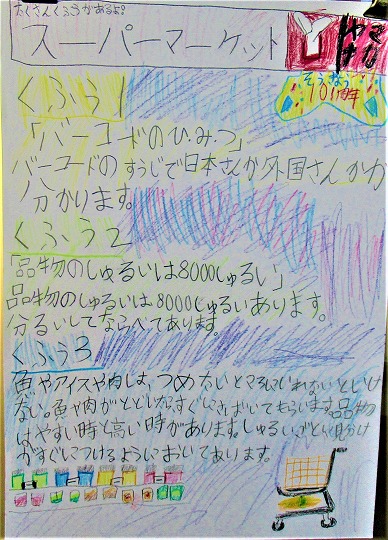 たくさんくふうがあるよ。
スーパーマーケット
くふう1
「バーコードのひみつ」
バーコードのすうじで日本さんか外国さんかが
分かります。
くふう2
「品物のしゅるいは8000しゅるい」
品物のしゅるいは8000しゅるいあります。
分るいしてならべてあります。
くふう3
魚やアイスや肉は、つめたい
いれないといけ
ない。魚や肉がとどいたらすぐにさばいてもらいます。品物
はやすい時と高い時があります。しゅるいごとに見分け
がすぐにつけるようにおいてあります。